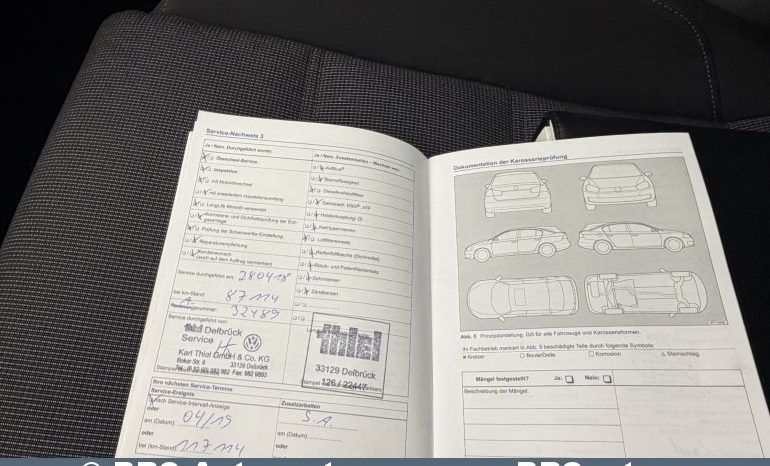 Service-Nachweis 3
Ja / Nein. Durchgeführt wurde:
Ja / Nein. Zusatzarbeiten – Wechsel von:
Ölwechsel-Service
Inspektion
mit Motorölwechsel
mit erweitertem Inspektionsumfang
LongLife Motoröl verwendet
Korrosions- und Dichtheitsprüfung der Erd-
gasanlage
Prüfung der Scheinwerfer-Einstellung
Reparaturempfehlung
Kundenwunsch
(siehe auf dem Auftrag vermerken)
AdBlue®
Bremsflüssigkeit
Dieselkraftstofffilter
Getriebeöl: DSG®, ATF
Haldexkupplung: Öl
Keilrippenriemen
Luftfiltereinsatz
Reifenfüllflasche (Dichtmittel)
Staub- und Pollenfiltereinsatz
Zahnriemen
Zündkerzen
Service durchgeführt am: 280418
bei km-Stand: 87114
A. 32489
Service durchgeführt von:
thiel Delbrück
Service
Karl Thiel GmbH & Co. KG
33129 Delbrück
thiel
33129 Delbrück
126 / 22447
Ihre nächsten Service-Termine
Service-Ereignis
Zusatzarbeiten
nach Service-Intervall-Anzeige
oder
am (Datum): 04/19
oder
bei (km-Stand): 117114
S.A.
am (Datum):
oder
Dokumentation der Karosserieprüfung
Abb. 5 Prinzipdarstellung. Gilt für alle Fahrzeuge und Karosserieformen.
Ihr Fachbetrieb markiert in Abb. 5 beschädigte Teile durch folgende Symbole:
× Kratzer ○ Beule/Delle □ Korrosion △ Steinschlag
Mängel festgestellt? Ja: Nein:
Beschreibung der Mängel: